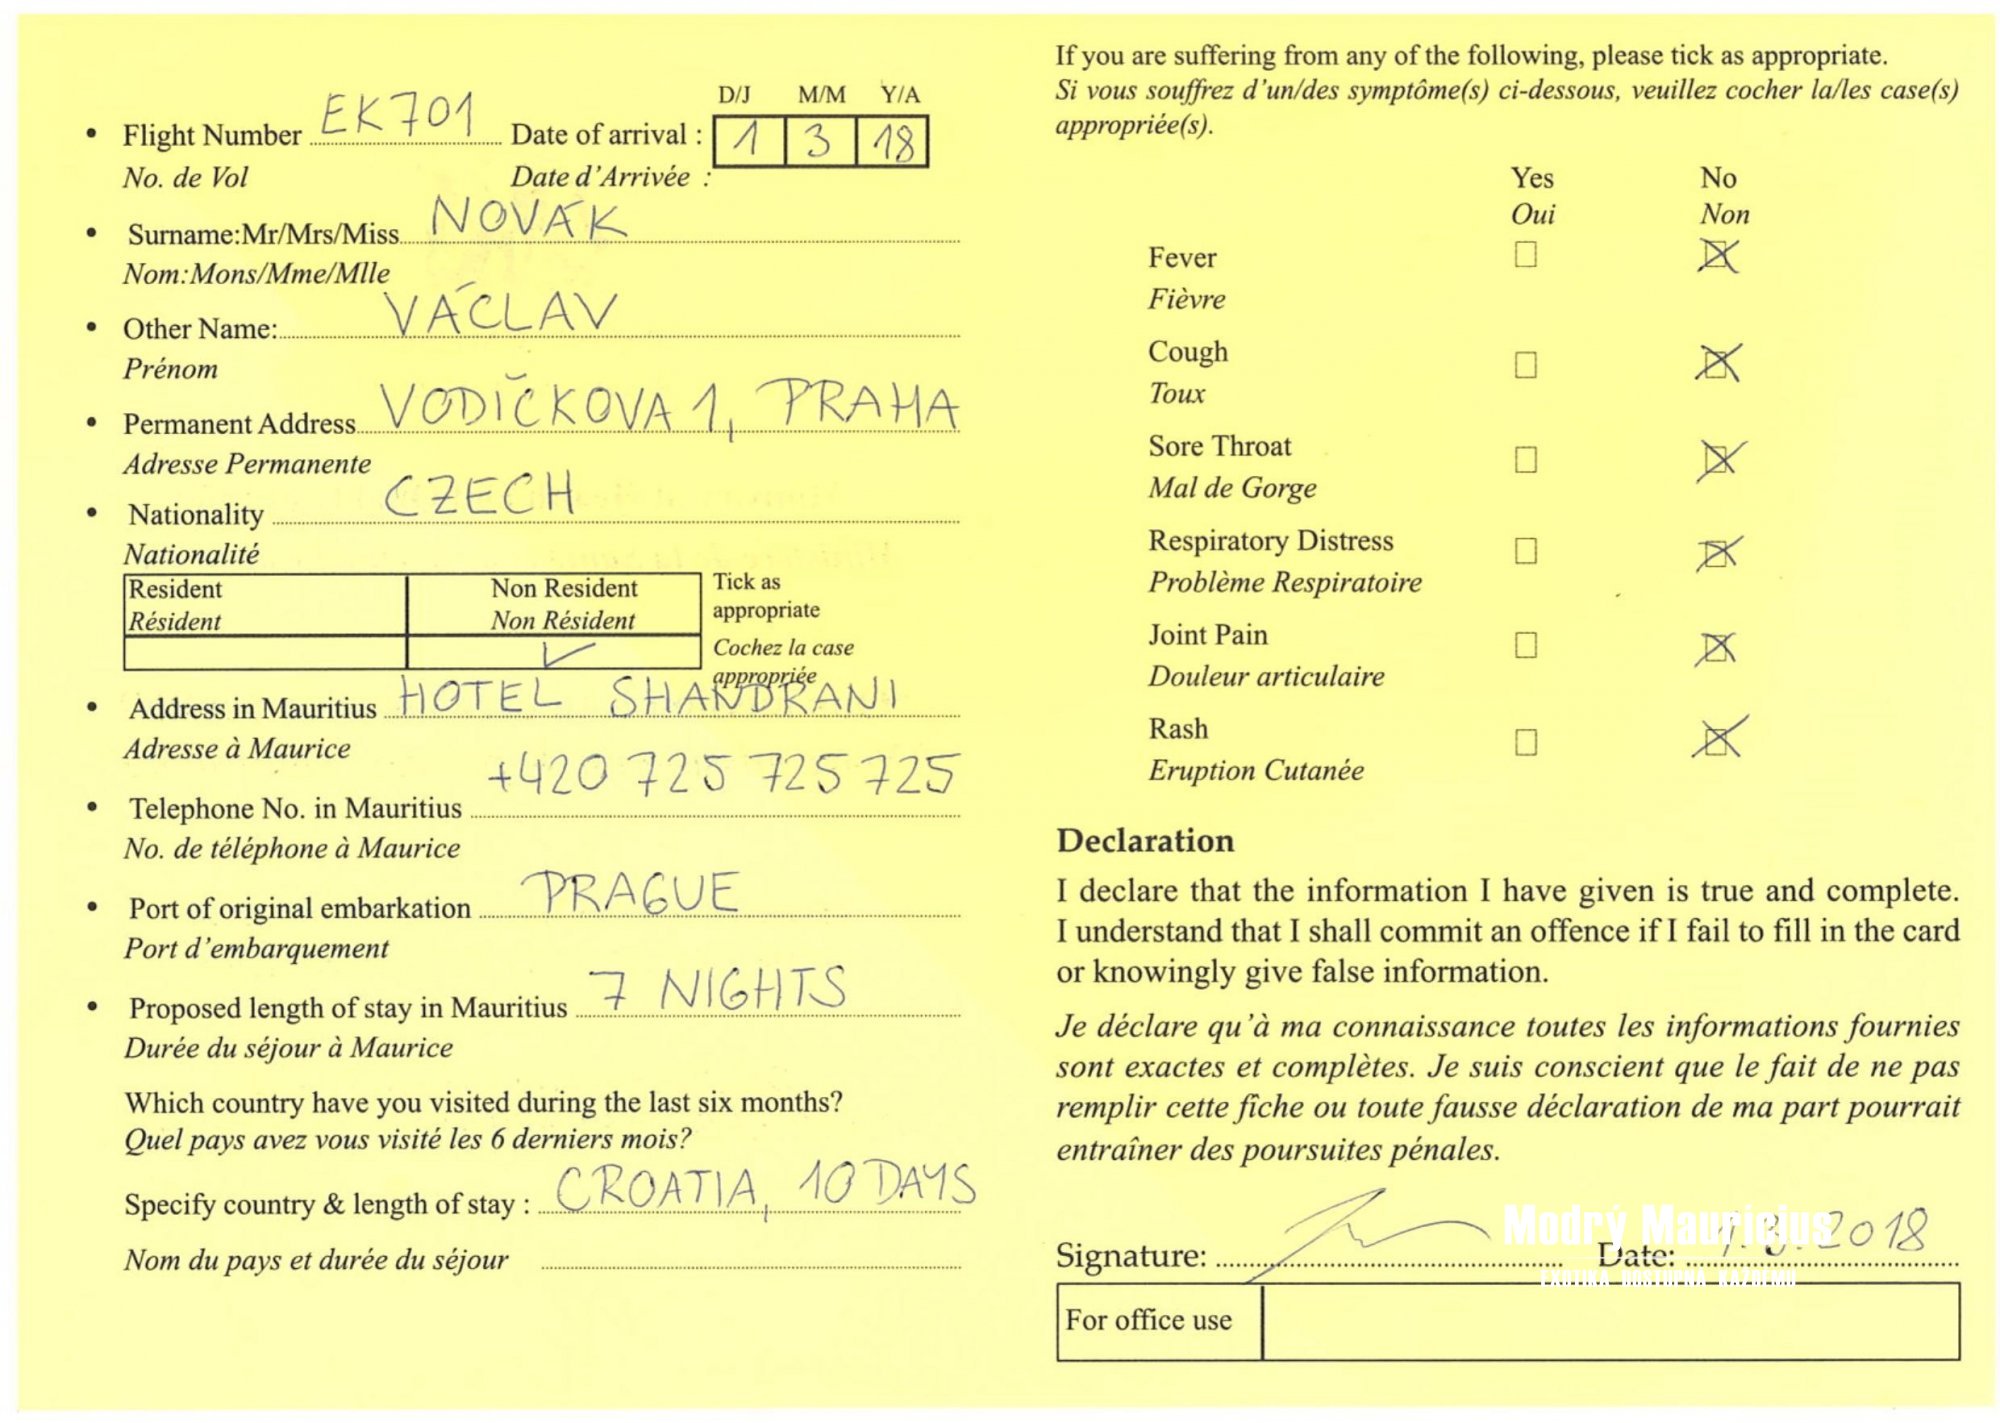 • Flight Number EK701 Date of arrival : D/J M/M Y/A 1 3 18
No. de Vol Date d'Arrivée :
• Surname:Mr/Mrs/Miss NOVÁK
Nom:Mons/Mme/Mlle
• Other Name: VÁCLAV
Prénom
• Permanent Address VODIČKOVA 1, PRAHA
Adresse Permanente
• Nationality CZECH
Nationalité
Resident Non Resident Tick as
Résident Non Résident appropriate
✓ Cochez la case
appropriée
• Address in Mauritius HOTEL SHANDRANI
Adresse à Maurice
• Telephone No. in Mauritius +420 725 725 725
No. de téléphone à Maurice
• Port of original embarkation PRAGUE
Port d'embarquement
• Proposed length of stay in Mauritius 7 NIGHTS
Durée du séjour à Maurice
Which country have you visited during the last six months?
Quel pays avez vous visité les 6 derniers mois?
Specify country & length of stay : CROATIA, 10 DAYS
Nom du pays et durée du séjour
If you are suffering from any of the following, please tick as appropriate.
Si vous souffrez d'un/des symptôme(s) ci-dessous, veuillez cocher la/les case(s)
appropriée(s).
Yes No
Oui Non
Fever ☐ ☒
Fièvre
Cough ☐ ☒
Toux
Sore Throat ☐ ☒
Mal de Gorge
Respiratory Distress ☐ ☒
Problème Respiratoire
Joint Pain ☐ ☒
Douleur articulaire
Rash ☐ ☒
Eruption Cutanée
Declaration
I declare that the information I have given is true and complete.
I understand that I shall commit an offence if I fail to fill in the card
or knowingly give false information.
Je déclare qu'à ma connaissance toutes les informations fournies
sont exactes et complètes. Je suis conscient que le fait de ne pas
remplir cette fiche ou toute fausse déclaration de ma part pourrait
entraîner des poursuites pénales.
Modrý Mauricius
Signature: Date: 1.3.2018
For office use